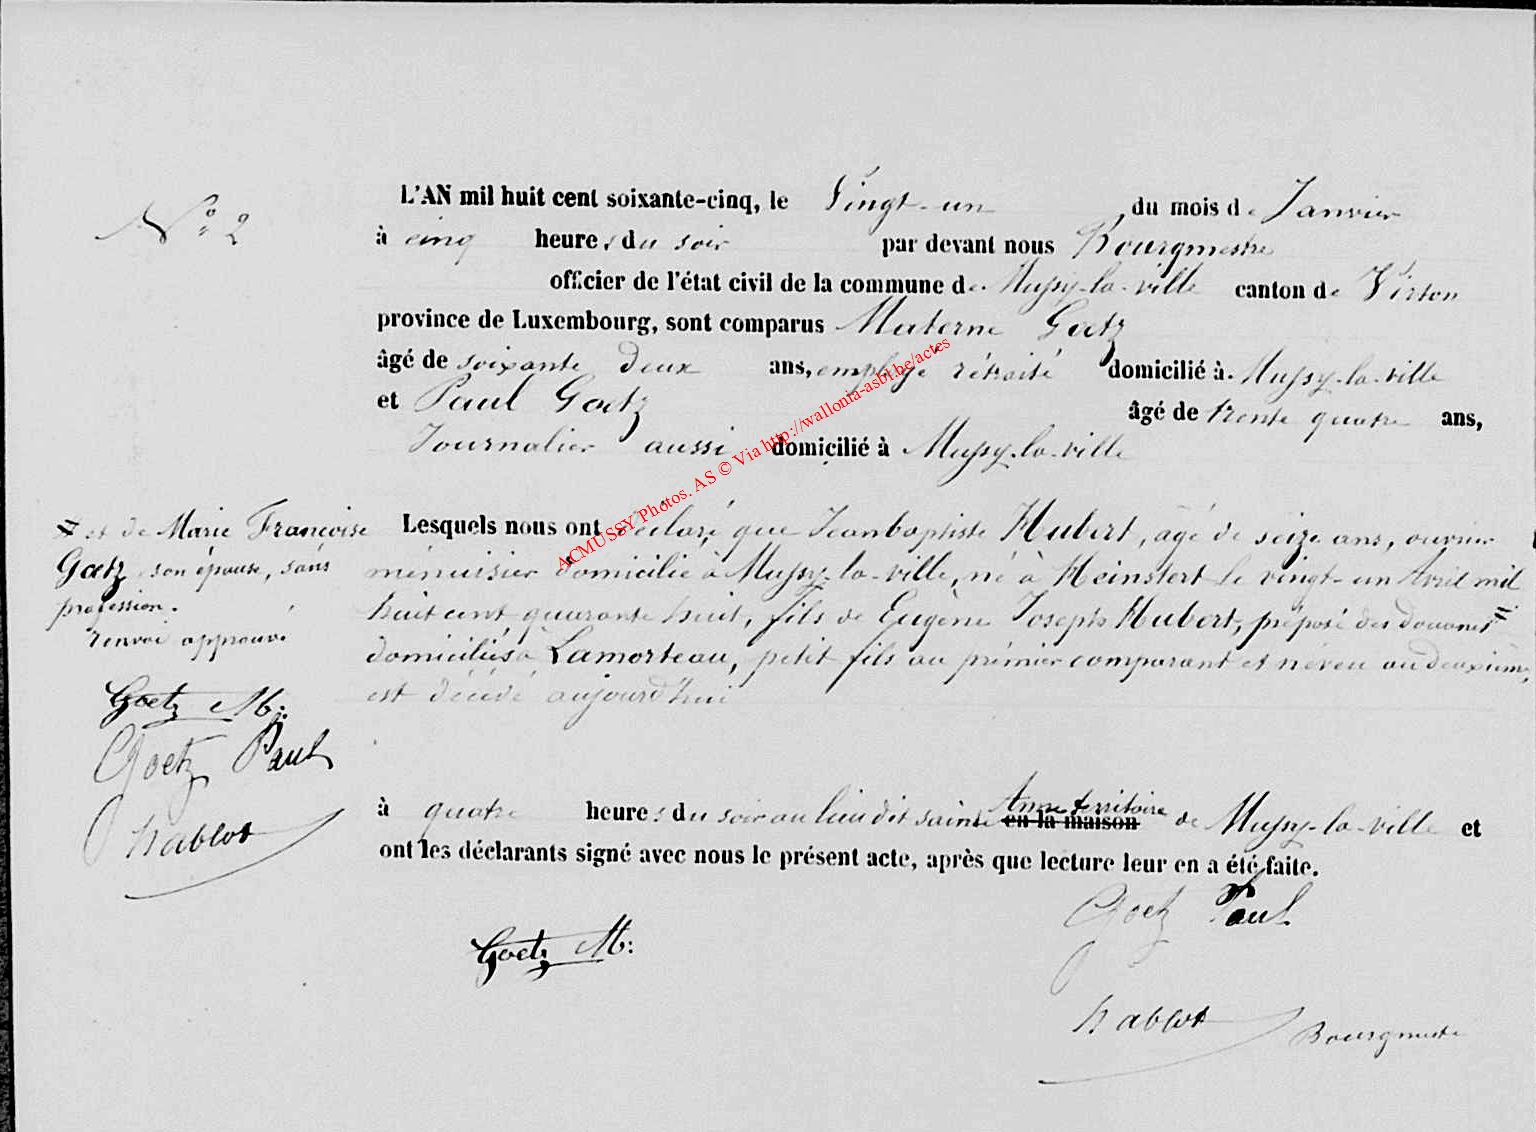 N° 2
L'AN mil huit cent soixante-cinq, le Vingt-un du mois de Janvier
à cinq heures du soir par devant nous Bourgmestre
officier de l'état civil de la commune de Mussy-la-ville canton de Virton
province de Luxembourg, sont comparus Materne Goetz
âgé de soixante deux ans, employé rétraité domicilié à Mussy-la-ville
et Paul Goetz âgé de trente quatre ans,
Journalier aussi domicilié à Mussy-la-ville
Lesquels nous ont déclaré que Jeanbaptiste Hubert, âgé de seize ans, ouvrier
ménuisier domicilié à Mussy-la-ville, né à Heinstert le vingt-un Avril mil
huit cent quarante huit, fils de Eugène Joseph Hubert, préposé des douanes #
domiciliés à Lamorteau, petit fils au prémier comparant et néveu au deuxième,
est décédé aujourd'hui
# et de Marie Françoise
Goetz, son épouse, sans
profession.
renvoi approuvé
Goetz M:
Goetz Paul
Hablot
à quatre heures du soir au lieu dit sainte Anne territoire en la maison de Mussy-la-ville et
ont les déclarants signé avec nous le présent acte, après que lecture leur en a été faite.
Goetz Paul
Goetz M:
Hablot Bourgmestre
ACMUSSY Photos. AS © Via http://wallonia-asbl.be/actes